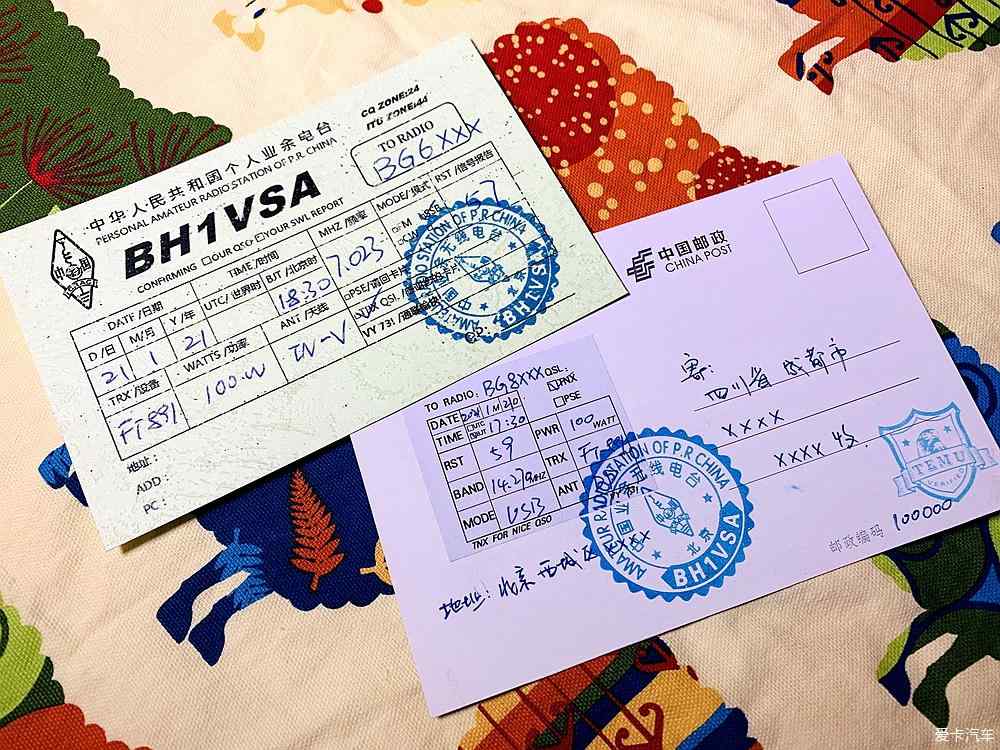 CQ ZONE:24
ITU ZONE:44
中华人民共和国个人业余电台
PERSONAL AMATEUR RADIO STATION OF P.R.CHINA
BH1VSA
TO RADIO
BG6XXX
CONFIRMING □OUR QSO □YOUR SWL REPORT
DATE/日期 TIME/时间 MHZ/频率 MODE/模式 RST/信号报告
D/日 M/月 Y/年 UTC/世界时 BJT/北京时
21 1 21 18:30 7.023 57
TRX/设备 WATTS/功率 ANT/天线
FT891 100W IN-V
地址:
ADD:
PC:
AMATEUR RADIO STATION OF P.R.CHINA
BH1VSA
中国邮政
CHINA POST
寄:
四川省 成都市
XXXX
XXXX 收
TO RADIO: BG8XXX QSL:
TNX
PSE
DATE
TIME 17:30 PWR 100 WATT
RST 59 TRX
BAND 14.270 MHZ ANT
MODE USB
TNX FOR NICE QSO
AMATEUR RADIO STATION OF P.R.CHINA
北京
BH1VSA
TEMU
地址: 北京 西城区 XXXX
邮政编码 100000
爱卡汽车